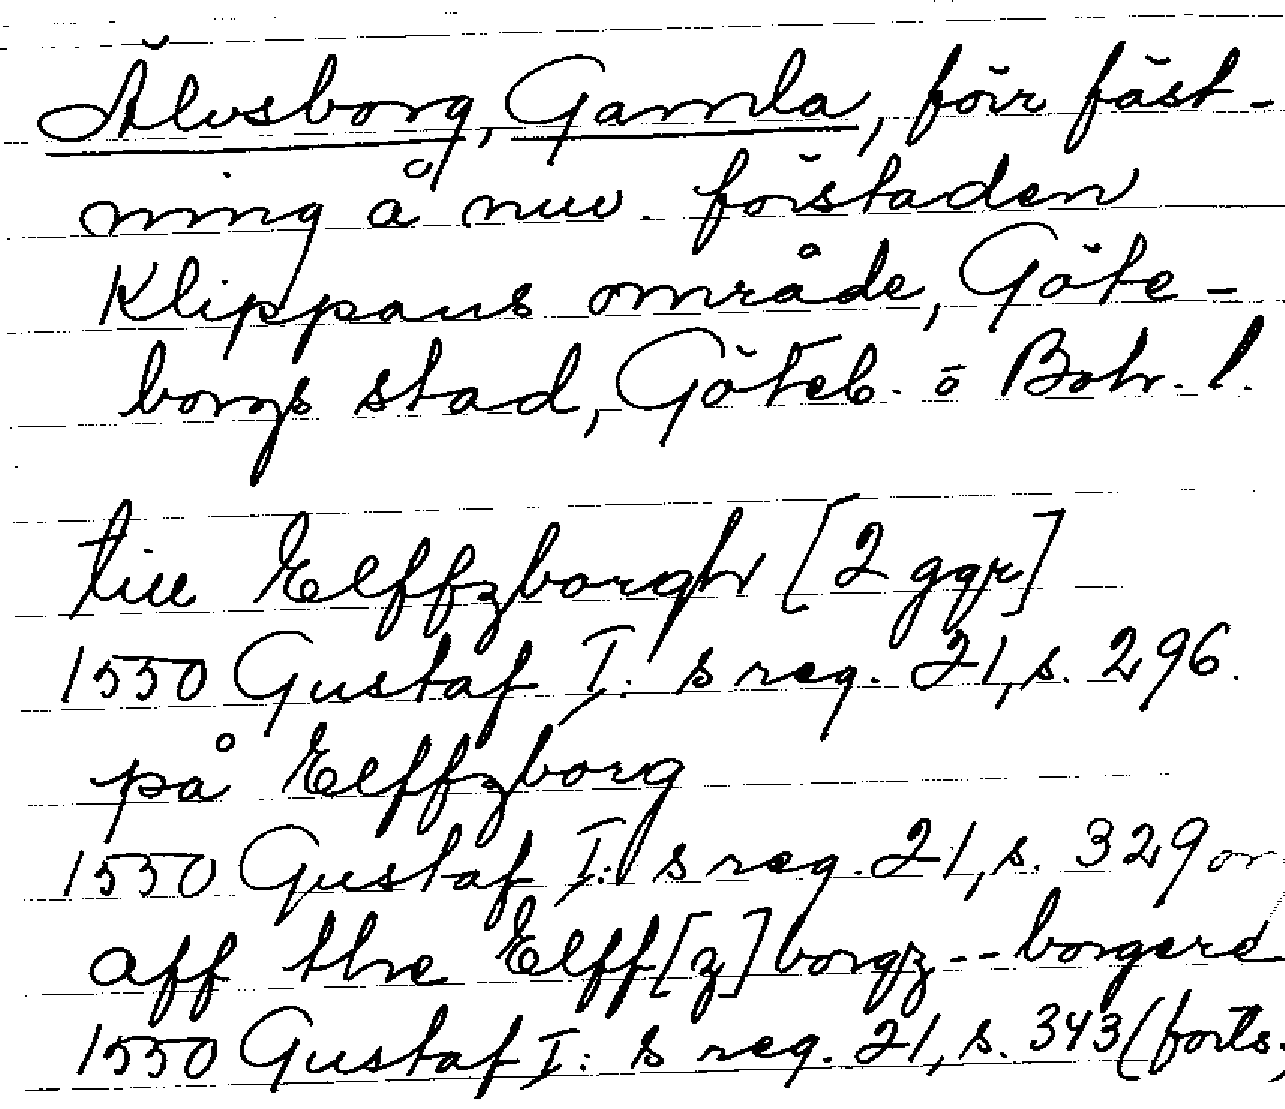 Älvsborg, Gamla, förr fäst-
ning å nuv. förstaden
Klippans område, Göte-
borgs stad, Göteb. o Boh. l.
till Elffzborgh [2 ggr]
1550 Gustaf I:s reg. 21, s. 296.
på Elffzborg
1550 Gustaf I:s reg. 21, s. 329 or
aff the Elff[z]borgz -- borgere
1550 Gustaf I:s reg. 21, s. 343 (forts.)